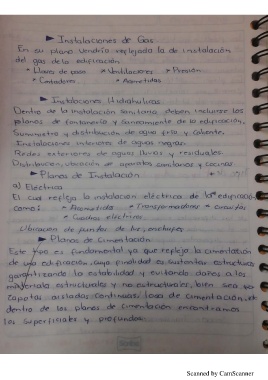 ► Instalaciones de Gas
En su plano vendría reflejada la de instalación
del gas de la edificación.
* Llaves de paso * Ventilaciones * Presión
* Contadores * Acometidas
► Instalaciones Hidrahulicas
Dentro de la instalación Sanitaria deben incluirse los
planos de fontanería y saneamiento de la edificación.
Suministro y distribución de agua fría y caliente.
Instalaciones interiores de aguas negras
Redes exteriores de aguas lluvias y residuales.
Distribución, ubicación de aparatos sanitarios y cocinas
► Planos de Instalación
a) Electrica
El cual refleja la instalación eléctrica de la edificación
como: * Acometida * Transformadores * circuitos
* Cuadros eléctrico
Ubicación de puntos de luz, enchufes
► Planos de Cimentación
Este tipo es fundamental ya que refleja la cimentación
de una edificación, cuya finalidad es sustentar estructuras
garantizando la estabilidad y evitando daños a los
materiales estructurales y no estructurales, bien sea por
zapatas aisladas, continuas, losa de cimentación,
dentro de los planos de cimentación encontramos
los superficiales y profundas.
Scanned by CamScanner